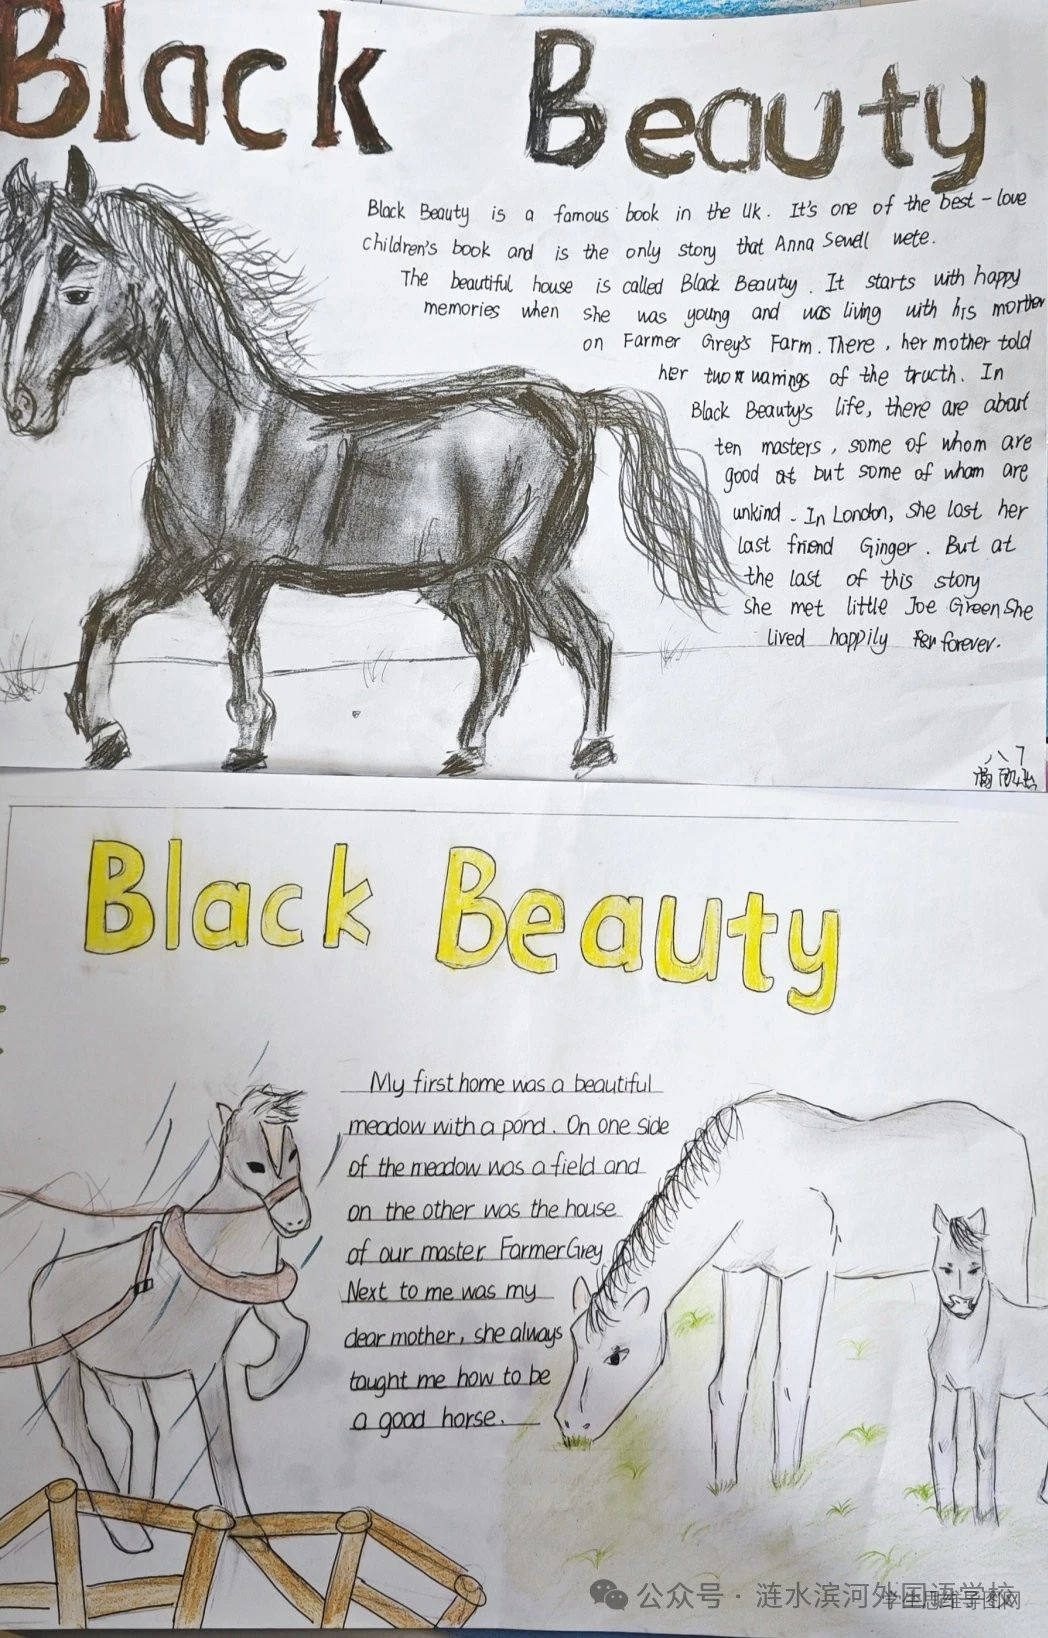 Black Beauty
Black Beauty is a famous book in the UK. It's one of the best-love
children's book and is the only story that Anna Sewell wete.
The beautiful house is called Black Beautuy. It starts with happy
memories when she was young and was living with his morther
on Farmer Grey's Farm. There, her mother told
her two warnings of the tructh. In
Black Beauty's life, there are about
ten masters, some of whom are
good at but some of wham are
unkind. In London, she lost her
last friend Ginger. But at
the last of this story
she met little Joe Green She
lived happily forever.
八7
Black Beauty
My first home was a beautiful
meadow with a pond. On one side
of the meadow was a field and
on the other was the house
of our master Farmer Grey
Next to me was my
dear mother, she always
taught me how to be
a good horse.
公众号·涟水滨河外国语学校
学生思维导图网